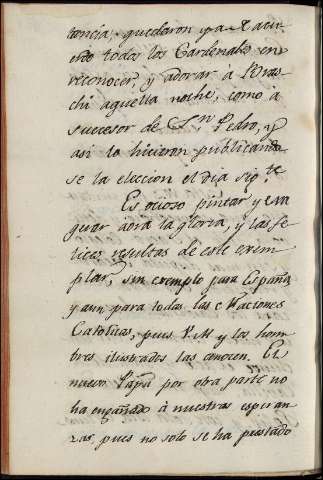 tencia, quedaron ya
endo todos los Cardenales en
reconocer, y adorar à Bras-
chi aquella noche, como à
sucesor de S.n Pedro, y
asi lo hicieron publicando
se la eleccion el dia sig.te
Es ocioso pintar y eva
quar aora la gloria, y las fe
lices resultas de este exem
plar, sin exemplo para España
y aun para todas las Naciones
Catolicas, pues V.M y los hom
bres ilustrados las conocen. El
nuevo Papa por otra parte no
ha engañado à nuestras esperan
zas, pues no solo se ha prestado